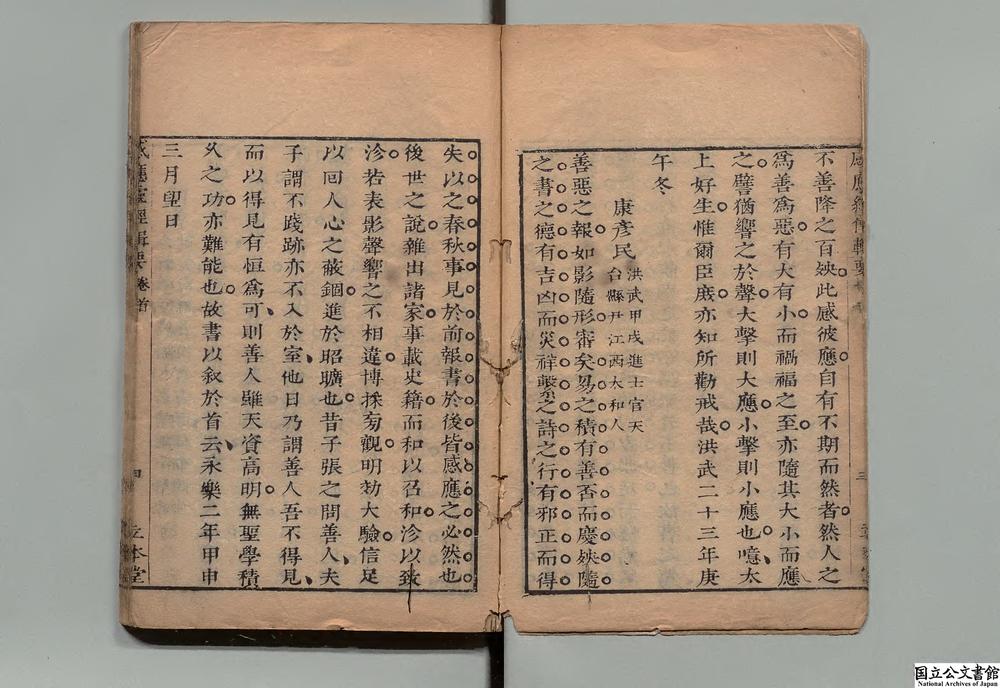 不善降之百殃此感彼應自有不期而然者然人之
爲善爲惡有大有小而禍福之至亦隨其大小而應
之譬猶響之於聲大擊則大應小擊則小應也噫太
上好生惟爾臣庶亦知所勸戒哉洪武二十三年庚
午冬
康彥民 洪武甲戌進士官天
台縣尹江西太和人
善惡之報如影隨形審矣易之積有善否而慶殃隨
之書之德有吉凶而災祥繫之詩之行有邪正而得
失以之春秋事見於前報書於後皆感應之必然也
後世之說雜出諸家事載史籍而和以召和沴以致
沴若表影聲響之不相違博採旁觀明効大驗信足
以回人心之蔽錮進於昭曠也昔子張之問善人夫
子謂不踐跡亦不入於室他日乃謂善人吾不得見
而以得見有恒爲可則善人雖天資高明無聖學積
久之功亦難能也故書以叙於首云永樂二年甲申
三月望日
感應靈經輯要 卷首 四 立本堂
国立公文書館
National Archives of Japan